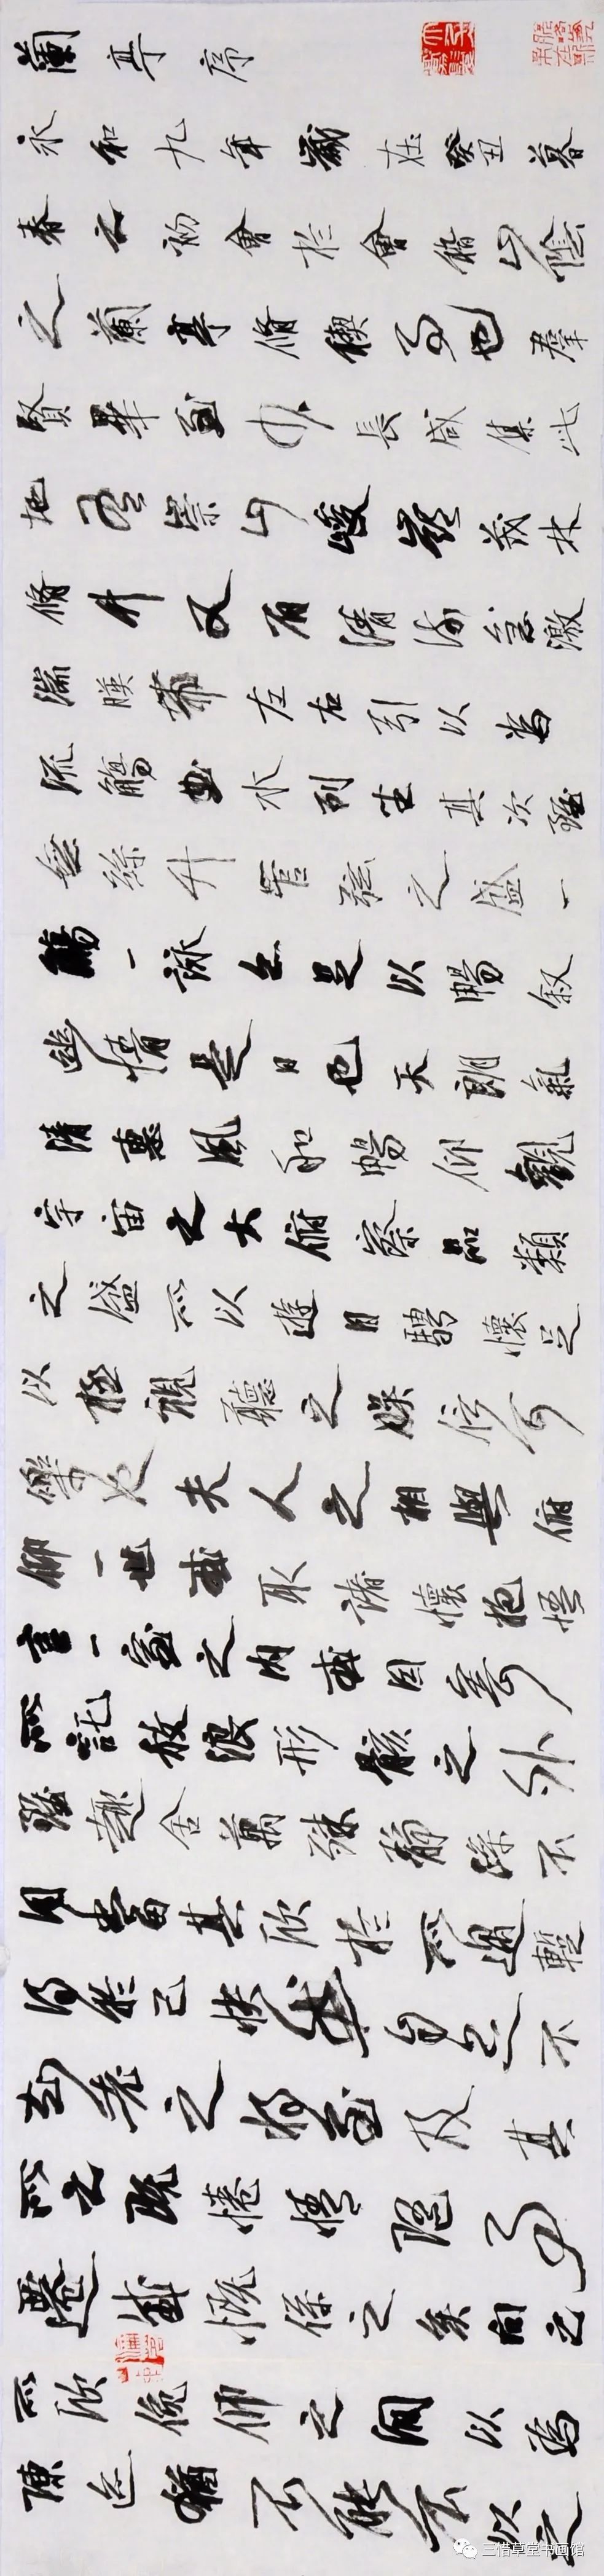 蘭亭序
永和九年歲在癸丑暮
春之初會於會稽山陰
之蘭亭脩禊事也羣
賢畢至少長咸集此
地有崇山峻嶺茂林
脩竹又有清流急激
湍暎帶左右引以為
流觴曲水列坐其次雖
無絲竹管弦之盛一
觴一詠亦足以暢叙
幽情是日也天朗氣
清惠風和暢仰觀
宇宙之大俯察品類
之盛所以遊目騁懷足
以極視聽之娛信可
樂也夫人之相與俯
仰一世或取諸懷抱悟
言一室之內或因寄
所託放浪形骸之外
雖趣舍萬殊靜躁不
同當其欣於所遇暫
得於己快然自足不
知老之將至及其
所之既惓情隨事
遷感慨係之矣向之
所欣俛仰之間以為
陳迹猶不能不以之
三惜草堂书画馆